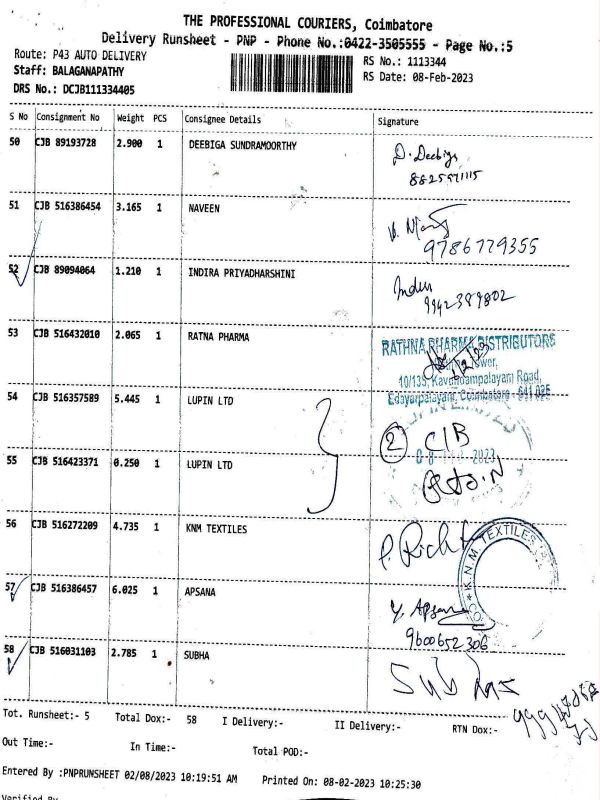 THE PROFESSIONAL COURIERS, Coimbatore
Delivery Runsheet - PNP - Phone No.:0422-3505555 - Page No.:5
Route: P43 AUTO DELIVERY
RS No.: 1113344
Staff: BALAGANAPATHY
RS Date: 08-Feb-2023
DRS No.: DCJB111334405
S No Consignment No Weight PCS Consignee Details Signature
50 CJB 89193728 2.900 1 DEEBIGA SUNDRAMOORTHY D. Deebiga
51 CJB 516386454 3.165 1 NAVEEN
9786779355
52 CJB 89094064 1.210 1 INDIRA PRIYADHARSHINI Inder
9942389802
53 CJB 516432010 2.065 1 RATNA PHARMA RATHNA PHARMA DISTRIBUTORS
10/135, Kavundampalayam Road,
Edayarpalayam, Coimbatore - 641 025
54 CJB 516357589 5.445 1 LUPIN LTD
2 C/B
55 CJB 516423371 0.250 1 LUPIN LTD
56 CJB 516272209 4.735 1 KNM TEXTILES
K.N.M. TEXTILES
57 CJB 516386457 6.025 1 APSANA Y. Apsana
9600652306
58 CJB 516031103 2.785 1 SUBHA
Tot. Runsheet:- 5 Total Dox:- 58 I Delivery:- II Delivery:- RTN Dox:-
Out Time:- In Time:- Total POD:-
Entered By :PNPRUNSHEET 02/08/2023 10:19:51 AM Printed On: 08-02-2023 10:25:30
Verified By